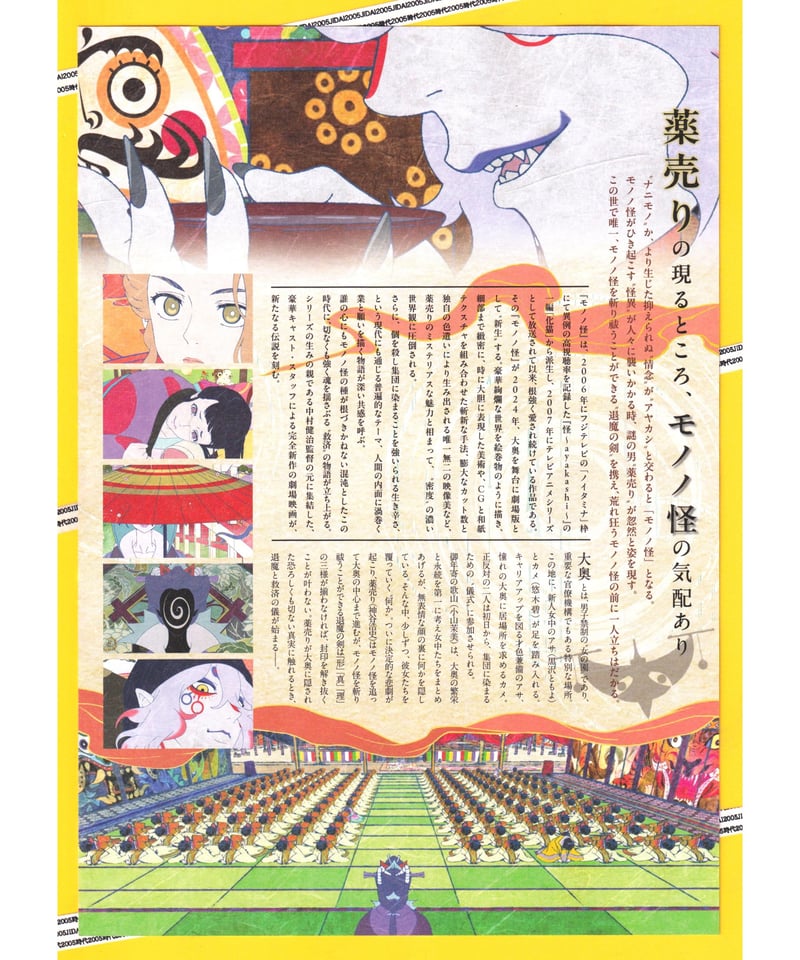 薬売りの現るところ、モノノ怪の気配あり
"ナニモノ"か、より生じた抑えられぬ"情念"が"アヤカシ"と交わると「モノノ怪」となる。
モノノ怪がひき起こす"怪異"が人々に襲いかかる時、謎の男"薬売り"が忽然と姿を現す。
この世で唯一、モノノ怪を斬り祓うことができる"退魔の剣"を携え、荒れ狂うモノノ怪の前に一人立ちはだかる。
『モノノ怪』は、2006年にフジテレビの「ノイタミナ」枠
にて異例の高視聴率を記録した『怪〜ayakashi〜』の
一編「化猫」から派生し、2007年にテレビアニメシリーズ
として放送されて以来、根強く愛され続けている作品である。
その『モノノ怪』が2024年、大奥を舞台に劇場版と
して、"新生"する。豪華絢爛な世界を絵巻物のように描き、
細部まで緻密に、時に大胆に表現した美術や、CGと和紙
テクスチャを組み合わせた斬新な手法、膨大なカット数と
独自の色遣いにより生み出される唯一無二の映像美など、
薬売りのミステリアスな魅力と相まって、"密度"の濃い
世界観に圧倒される。
さらに、個を殺し集団に染まることを強いられる生き辛さ、
という現代にも通じる普遍的なテーマ、人間の内面に渦巻く
業と願いを描く物語が深い共感を呼ぶ。
誰の心にもモノノ怪の種が根づきかねない混沌としたこの
時代に、切なくも強く魂を揺さぶる"救済"の物語が立ち上がる。
シリーズの生みの親である中村健治監督の元に集結した、
豪華キャスト・スタッフによる完全新作の劇場映画が、
新たなる伝説を刻む。
大奥とは、男子禁制の"女の園"であり、
重要な官僚機構でもある特別な場所。
この地に、新人女中のアサ（黒沢ともよ）
とカメ（悠木碧）が足を踏み入れる。
キャリアアップを図る才色兼備のアサ、
憧れの大奥に居場所を求めるカメ。
正反対の二人は初日から、集団に染まる
ための"儀式"に参加させられる。
御年寄の歌山（小山茉美）は、大奥の繁栄
と永続を第一に考え女中たちをまとめ
あげるが、無表情な顔の裏に何かを隠し
ている。そんな中、少しずつ、彼女たちを
覆っていく"何か"。ついに決定的な悲劇が
起こり、薬売り（神谷浩史）はモノノ怪を追っ
て大奥の中心まで進むが、モノノ怪を斬り
祓うことができる退魔の剣は「形」「真」「理」
の三様が揃わなければ、封印を解き抜く
ことが叶わない。薬売りが大奥に隠され
た恐ろしくも切ない真実に触れるとき、
退魔と救済の儀が始まる――。